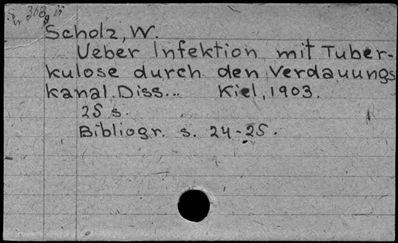 Scholz, W.
Ueber Infektion mit Tuber-
kulose durch den Verdauungs
kanal. Diss... Kiel, 1903.
25 s.
Bibliogr. s. 24-25.